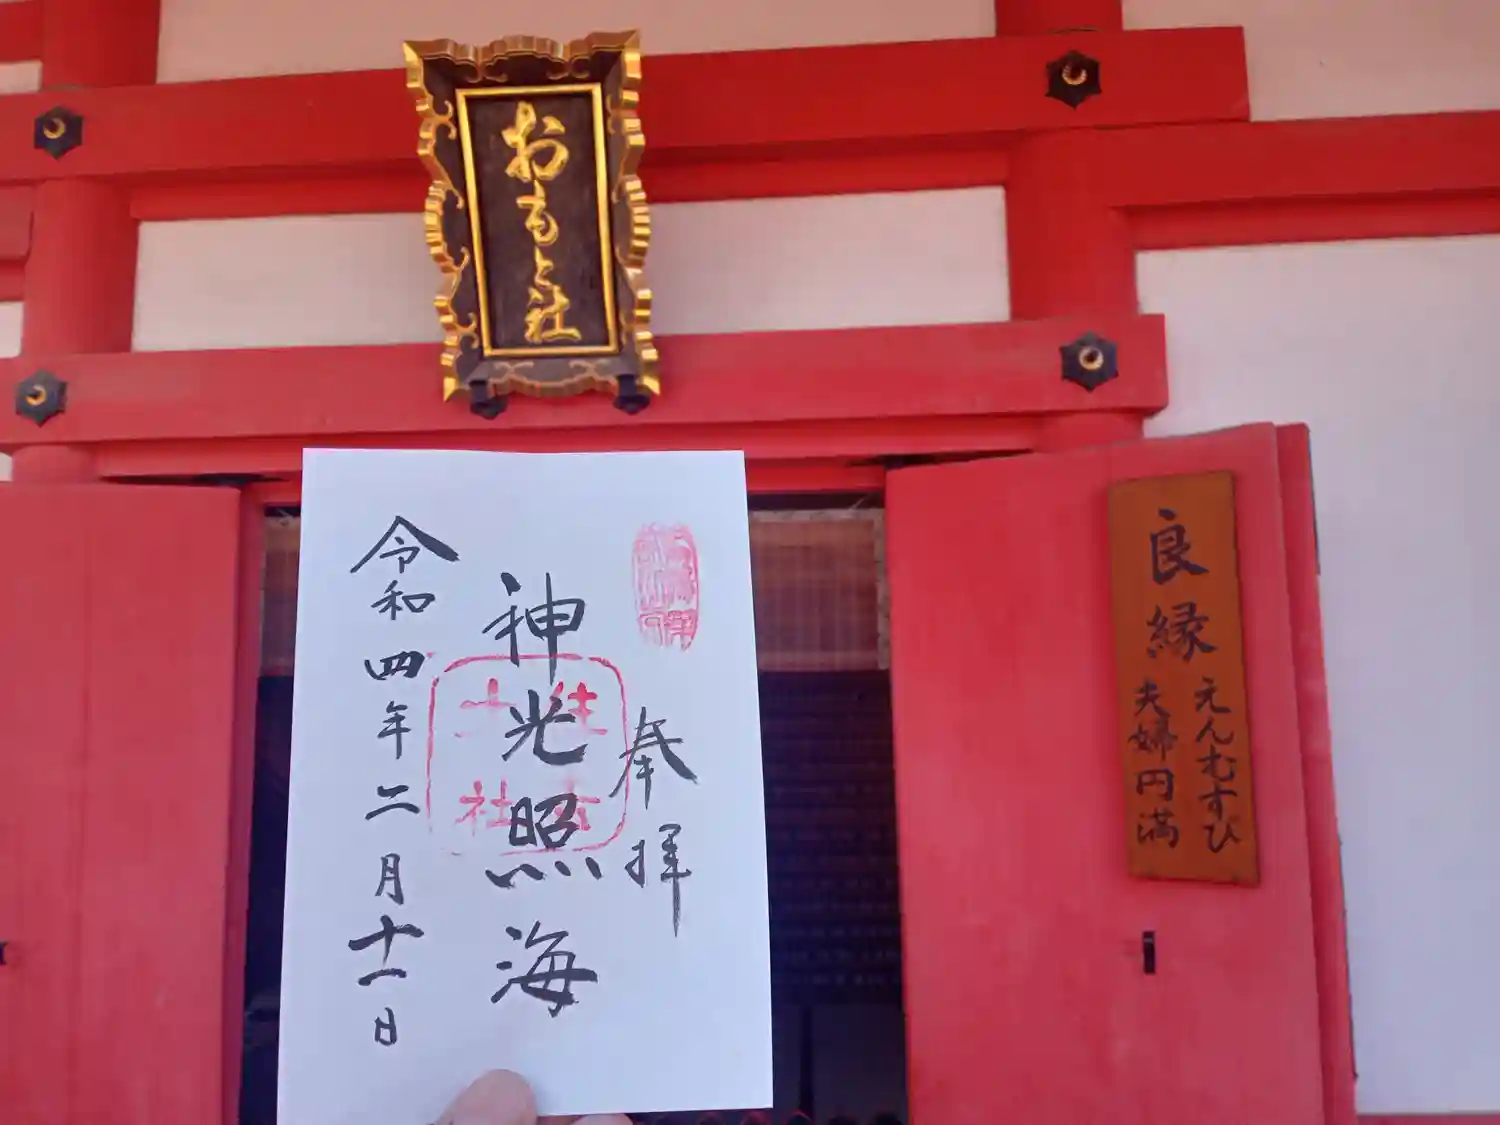 おもと社
奉拝
神光照海
住吉
土社
令和四年二月十一日
良縁
えんむすび
夫婦円満